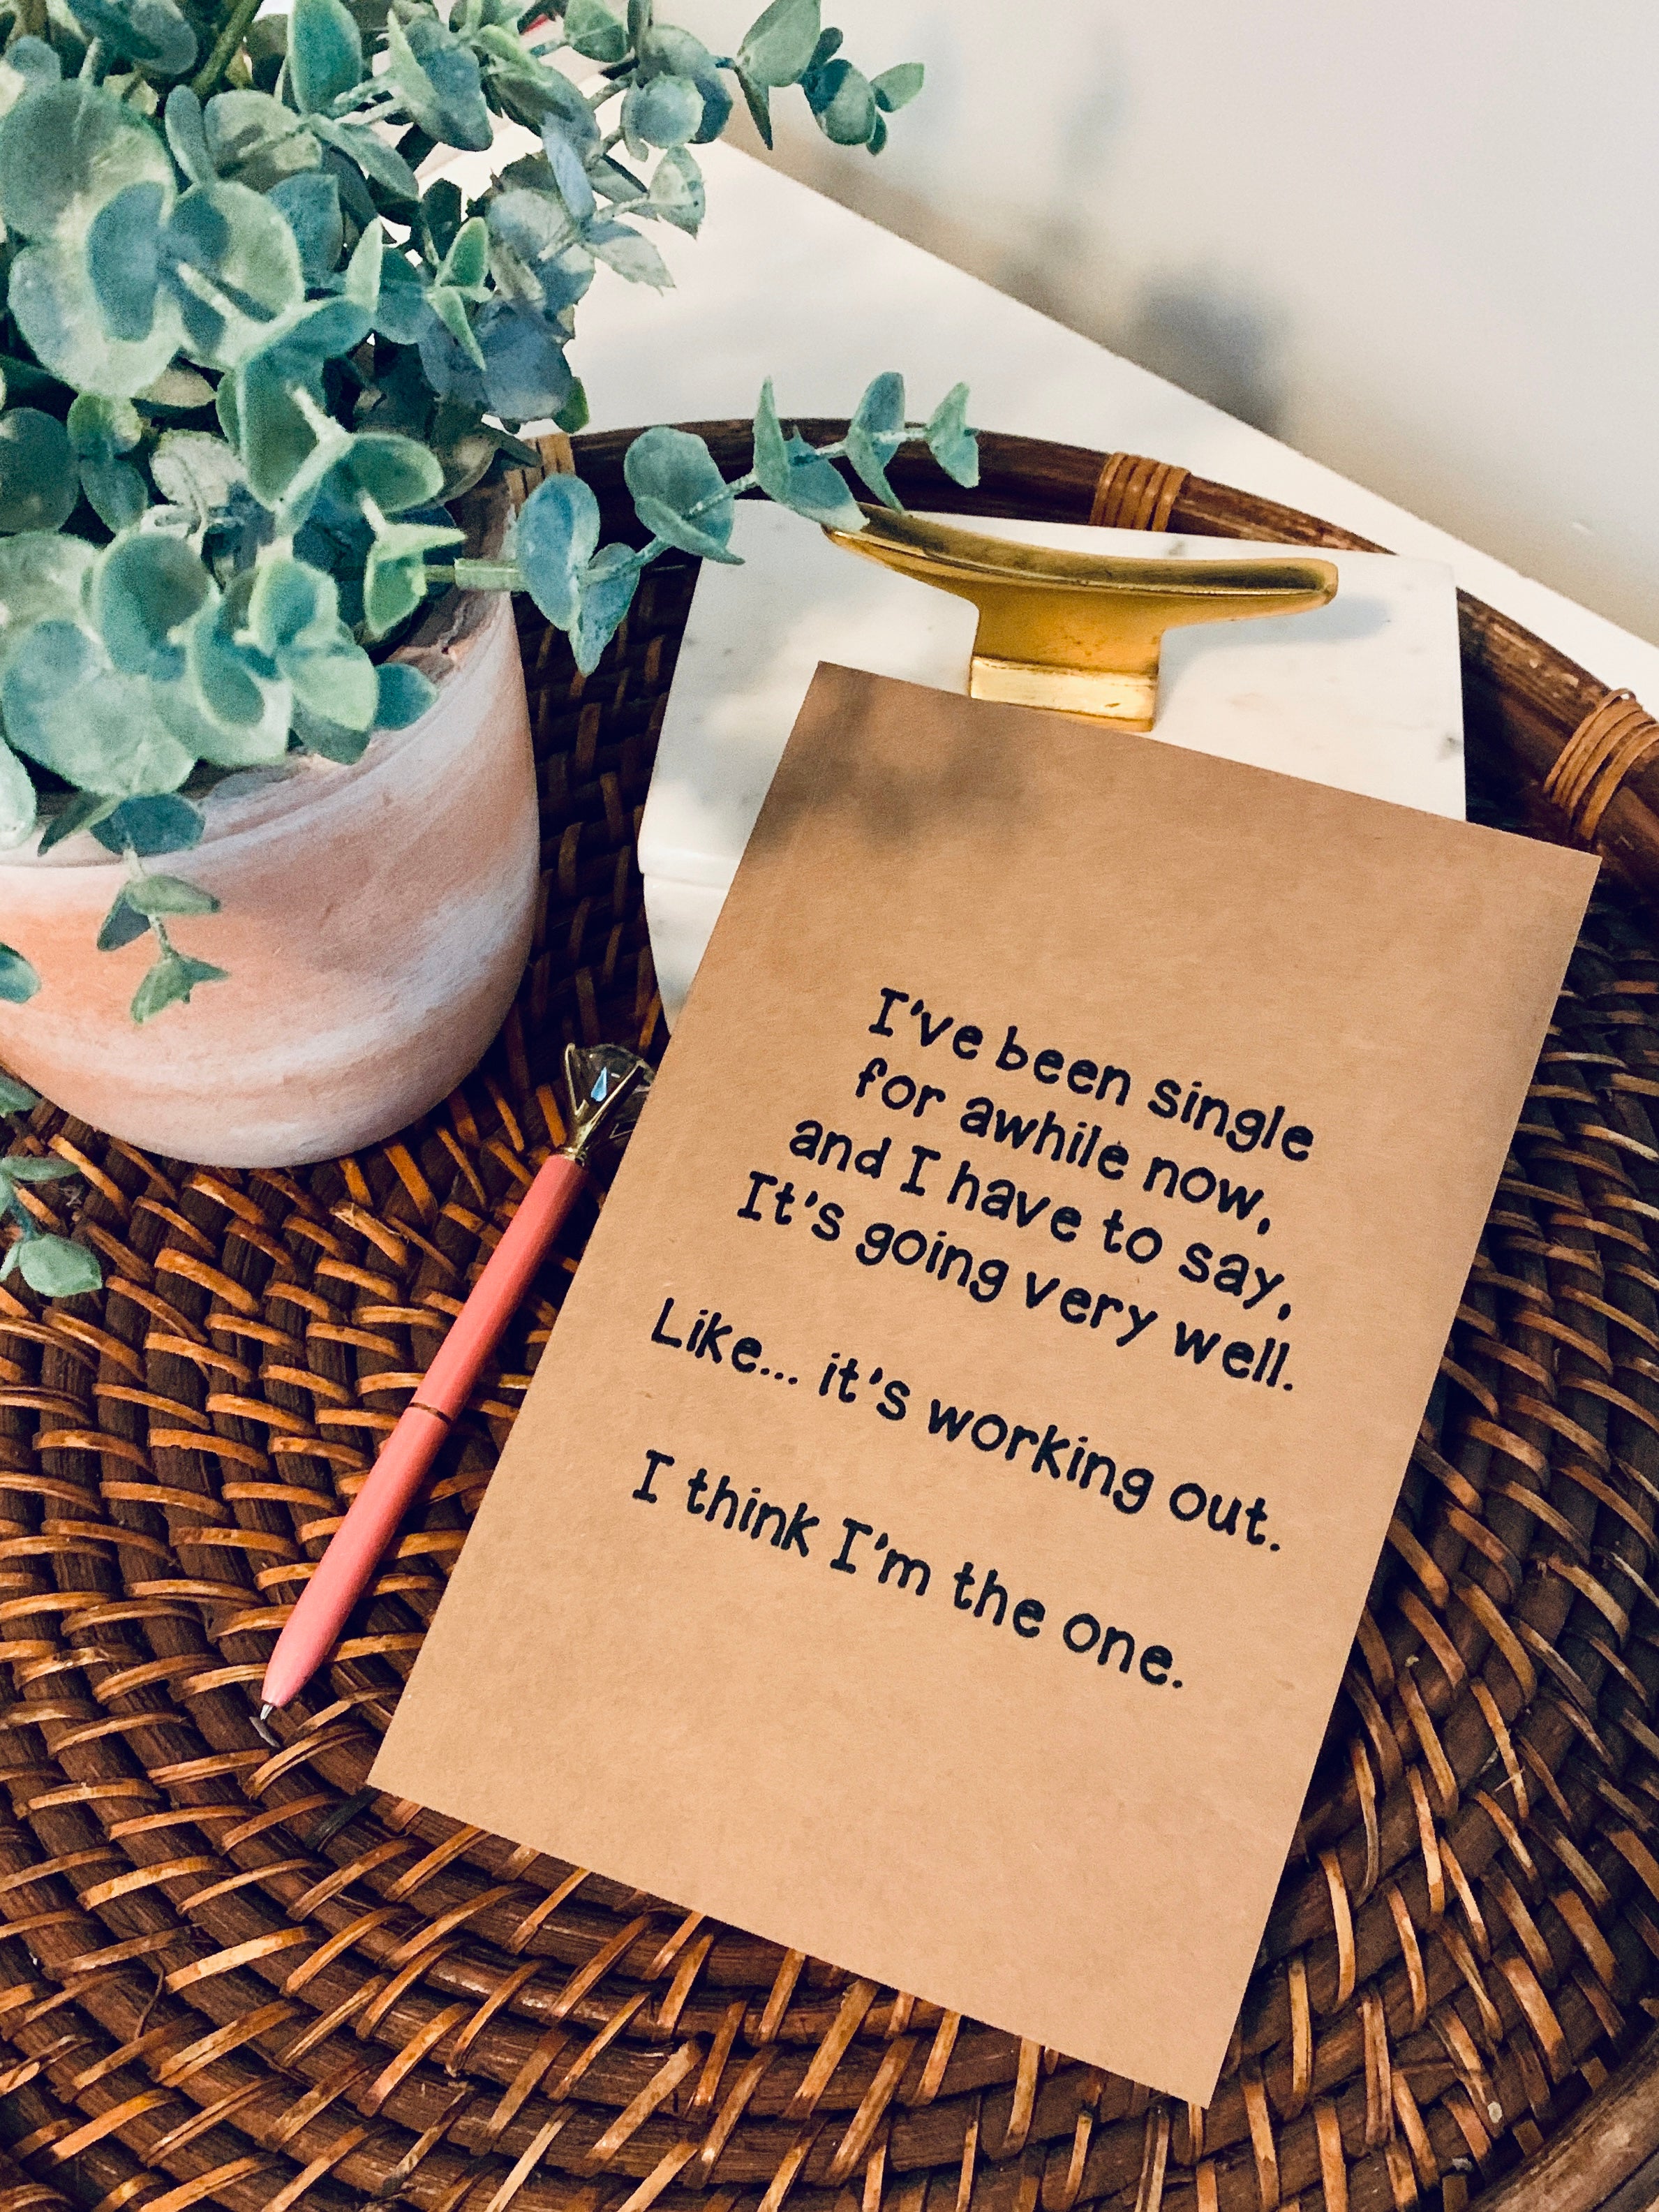 I've been single
for awhile now,
and I have to say,
It's going very well.
Like... it's working out.
I think I'm the one.